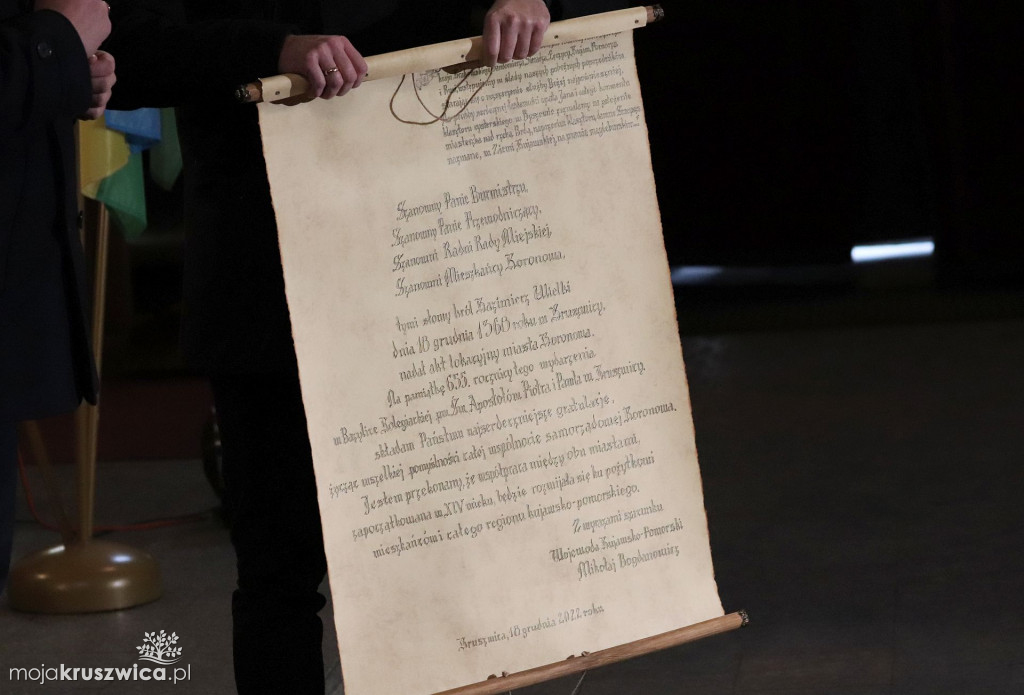 i Rusi, wstępujemy w ślady naszych pobożnych poprzedników
miasteczka nad rzeką Brdą, naprzeciw Klasztoru,
nazwane, w Ziemi Kujawskiej, na prawie magdeburskim [...]"
Szanowny Panie Burmistrzu,
Szanowny Panie Przewodniczący,
Szanowni Radni Rady Miejskiej,
Szanowni Mieszkańcy Koronowa,
tymi słowy król Kazimierz Wielki
dnia 18 grudnia 1368 roku w Kruszwicy,
nadał akt lokacyjny miasta Koronowa.
Na pamiątkę 655. rocznicy tego wydarzenia
w Bazylice Kolegiackiej pw. Św. Apostołów Piotra i Pawła w Kruszwicy,
składam Państwu najserdeczniejsze gratulacje,
życząc wszelkiej pomyślności całej wspólnocie samorządowej Koronowa.
Jestem przekonany, że współpraca między obu miastami,
zapoczątkowana w XIV wieku, będzie rozwijała się ku pożytkowi
mieszkańców i całego regionu kujawsko-pomorskiego.
Z wyrazami szacunku
Wojewoda Kujawsko-Pomorski
Mikołaj Bogdanowicz
Kruszwica, 18 grudnia 2022 roku
mojakruszwica.pl